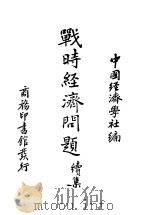 中國經濟學社編
戰時經濟問題續集
商務印書館發行